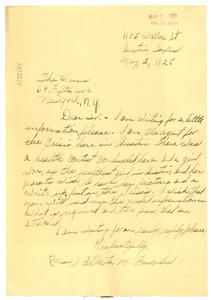 1105 Waller St
Austin Texas
May 2, 1928
The Crisis
69 Fifth ave
New York, N.Y.
Dear sir: - I am writing for a little
information please. I am the agent for
the Crisis here in Austin. There was
a health contest conducted here and a girl
won, as the healthiest girl in Austin and her
parents wish to have her picture and a
write up, put in the Crisis. I wish that
you will send me the needed information
what is required and the price that are
attached.
I am waiting for an early reply please.
Respectfully,
(Miss) Alberta M.